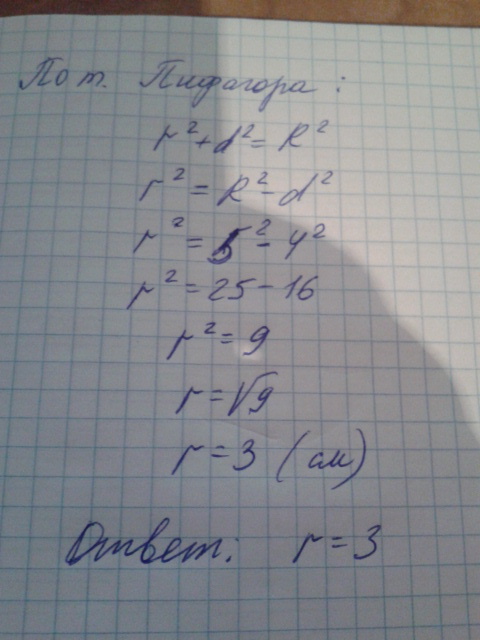 По т. Пифагора:
r²+d²=R²
r²=R²-d²
r²=5²-4²
r²=25-16
r²=9
r=√9
r=3 (см)
Ответ: r=3